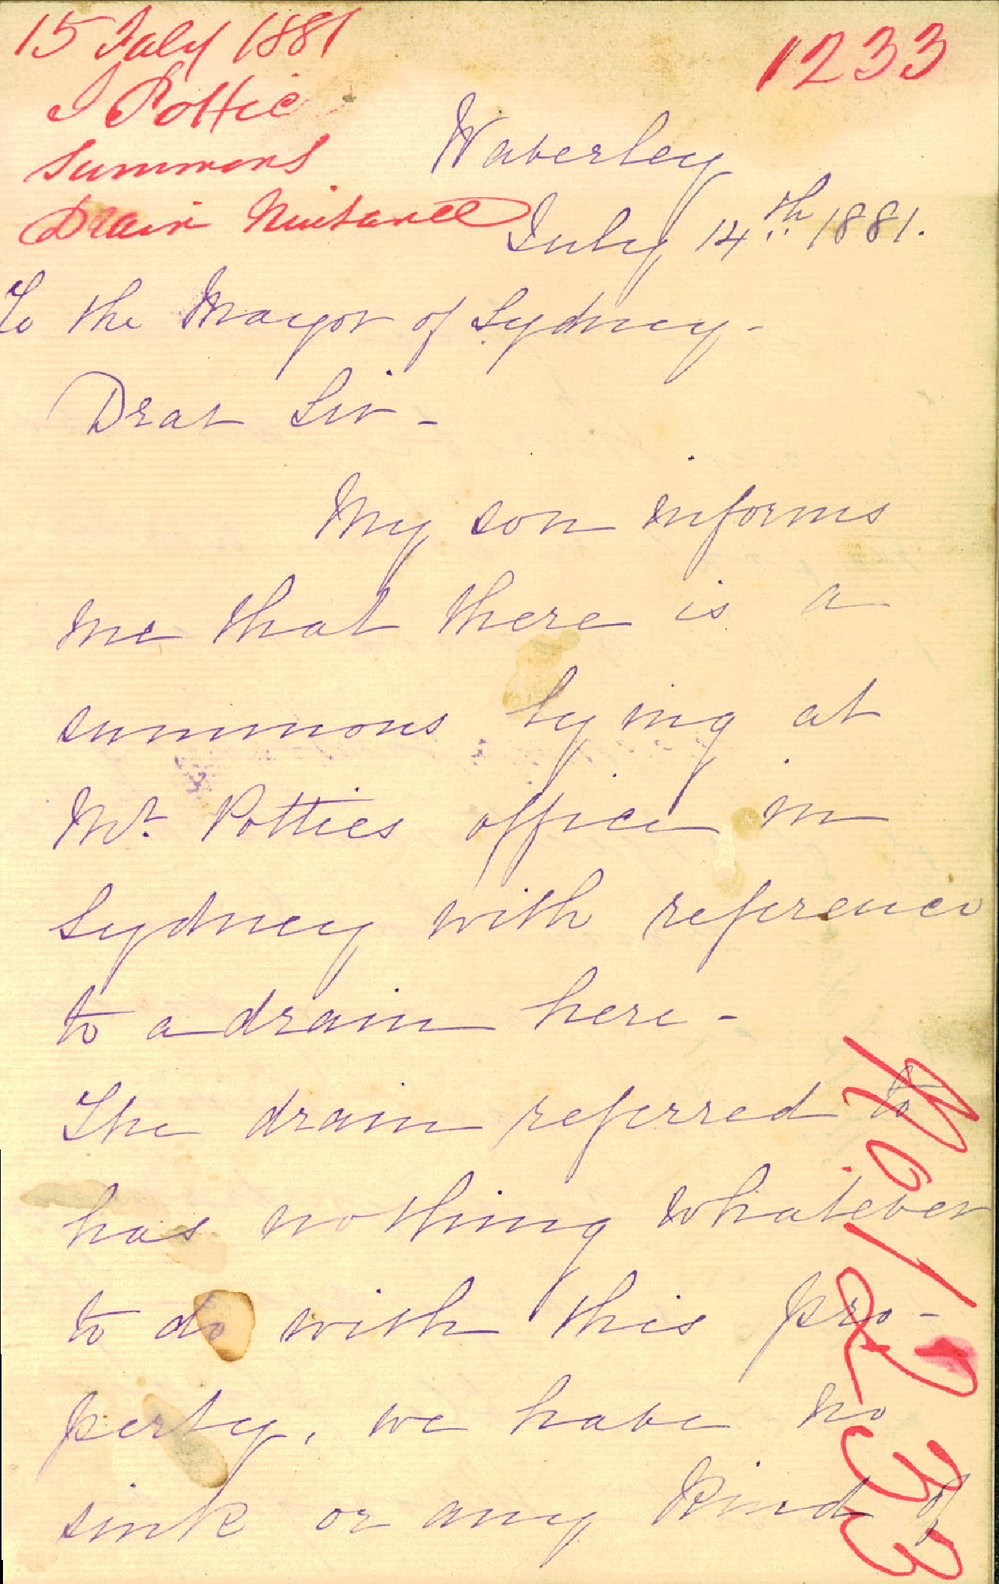 15 July 1881
J Pottie
Summons
Drain Nuisance
1233
Waverley
July 14th 1881.
To the Mayor of Sydney -
Dear Sir -
My son informs
me that there is a
summons lying at
Mr. Potties office in
Sydney with reference
to a drain here -
The drain referred to
has nothing whatever
to do with this pro-
perty, we have no
sink or any kind of
No 1233